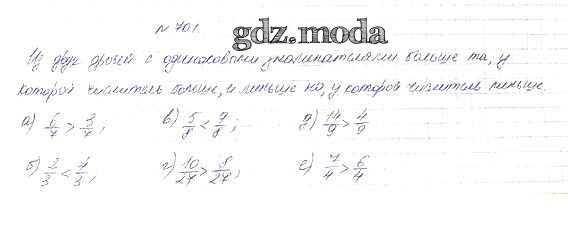 № 701.
gdz.moda
Из двух дробей с одинаковыми знаменателями больше та, у
которой числитель больше, и меньше та, у которой числитель меньше.
а) 6/7 > 3/7; в) 5/8 < 9/8; д) 14/9 > 4/9
б) 2/3 < 4/3; г) 10/27 > 8/27; е) 7/4 > 6/4